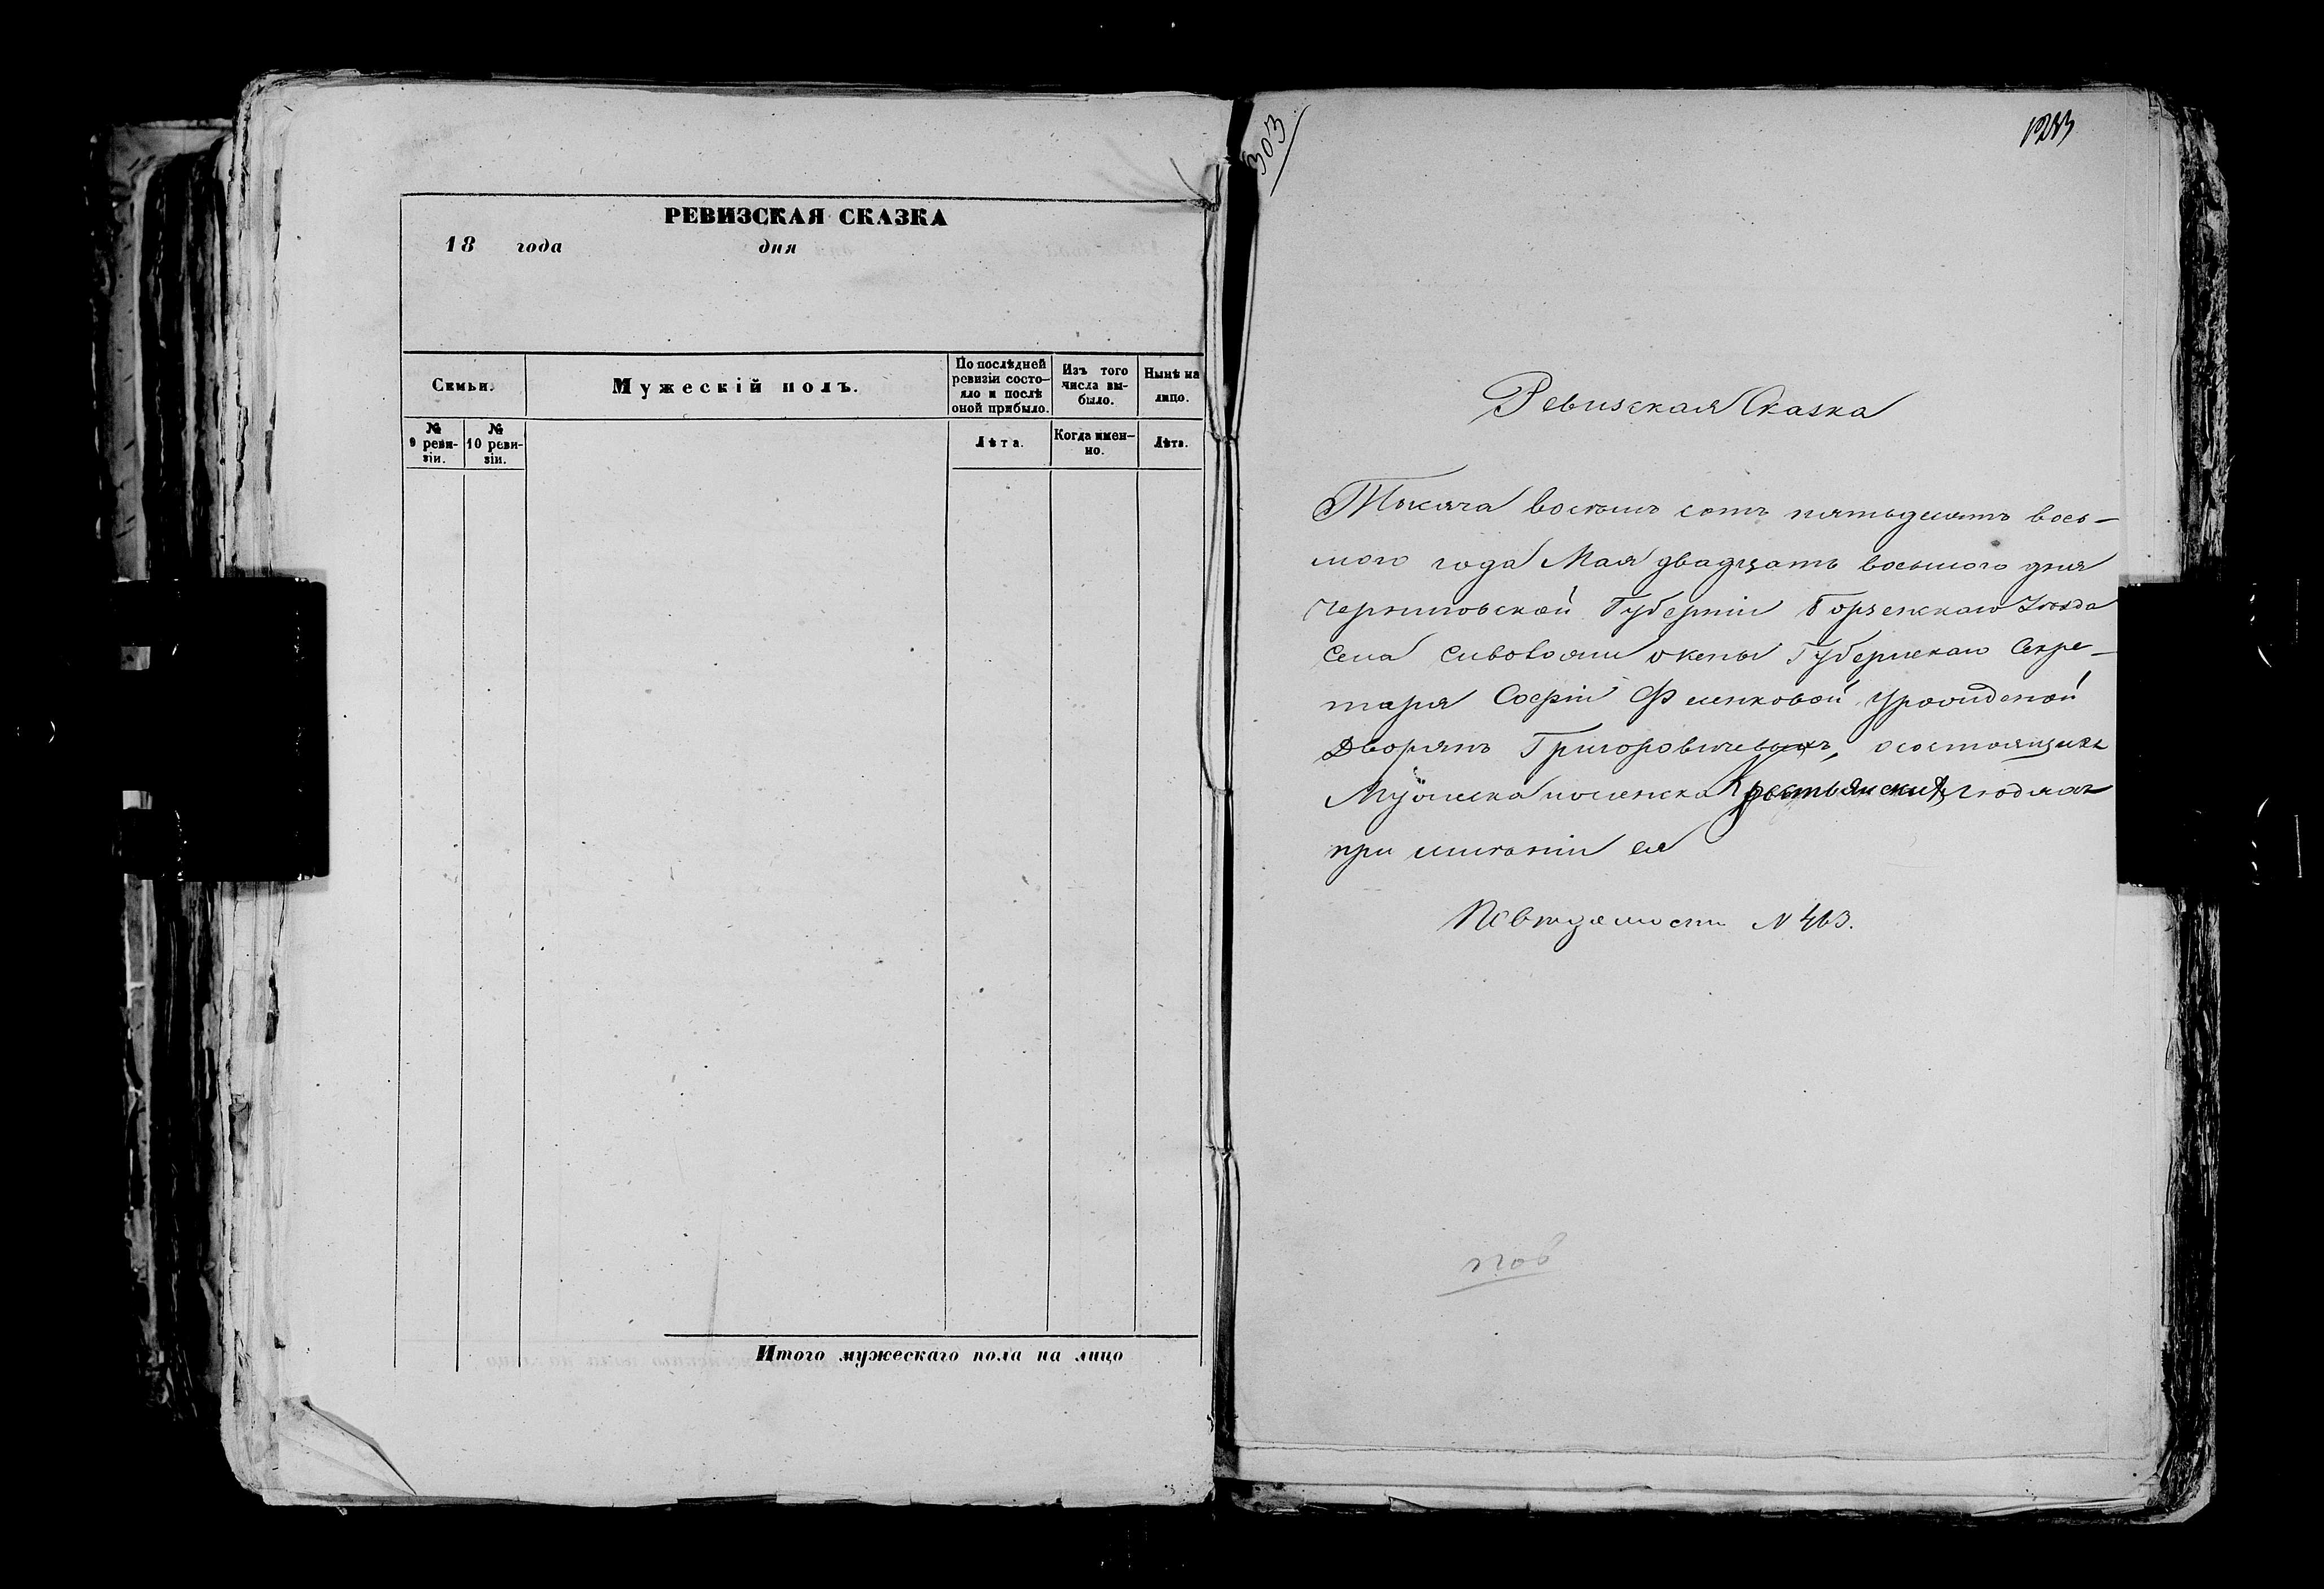 РЕВИЗСКАЯ СКАЗКА
18 года дня
Семьи.
Мужескій полъ.
По послѣдней ревизіи состо-
яло и послѣ
оной прибыло.
Изъ того
числа вы-
было.
Нынѣ на
лицо.
№
9 реви-
зіи.
№
10 реви-
зіи.
Лѣта.
Когда имен-
но.
Лѣта.
Итого мужескаго пола на лицо
303
Ревизская Сказка
Тысяча восемь сотъ пятьдесятъ вось-
мого года Мая двадцать восьмого дня
Черниговской Губерніи Борзенскаго Уезда
Села жены Губернскаго Секре-
таря Софіи Фленковой урожденой
Дворянъ о состоящихъ
Мужеска и женска Крестьянских людяхъ
при имѣніи ея
По вѣдомости N 463.